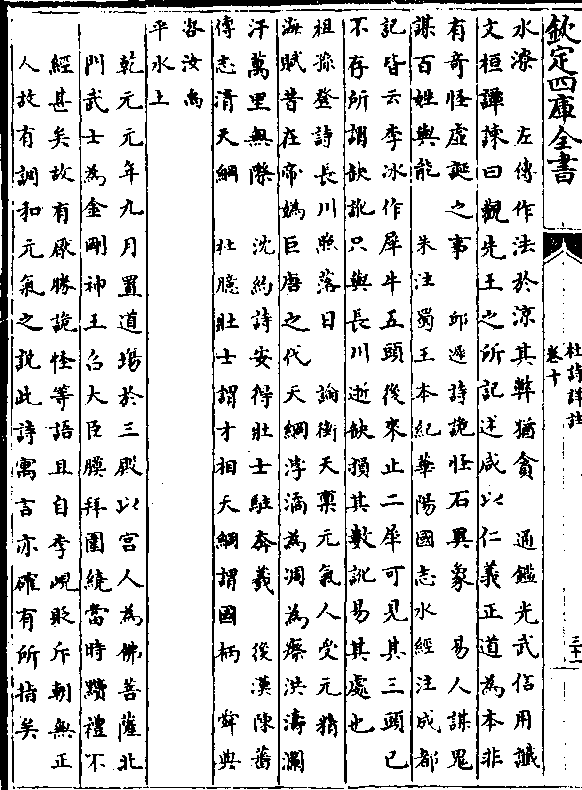 欽定四庫全書
杜詩詳註
卷十
水潦　左傳作法於涼其弊猶貪　通鑑光武信用讖
文桓譚諫曰觀先王之所記述咸以仁義正道為本非
有奇怪虛誕之事　邱遲詩詭怪石異象　易人謀鬼
謀百姓與能　朱注蜀王本紀華陽國志水經注成都
記皆云李冰作犀牛五頭後來止二犀可見其三頭已
不存所謂缺訛只與長川逝缺損其數訛易其處也
祖孫登詩長川照落日　論衡天稟元氣人受元精
海賦昔在帝媯巨唐之代天綱浡潏為凋為瘵洪濤瀾
汗萬里無際　沈約詩安得壯士駐奔羲　後漢陳蕃
傳志清天綱　杜臆壯士謂才相天綱謂國柄　舜典
咨汝禹
平水土
乾元元年九月置道場於三殿以宮人為佛菩薩北
門武士為金剛神王召大臣膜拜圍繞當時黷禮不
經甚矣故有厭勝詭怪等語且自李峴貶斥朝無正
人故有調和元氣之説此詩寓言亦確有所指矣